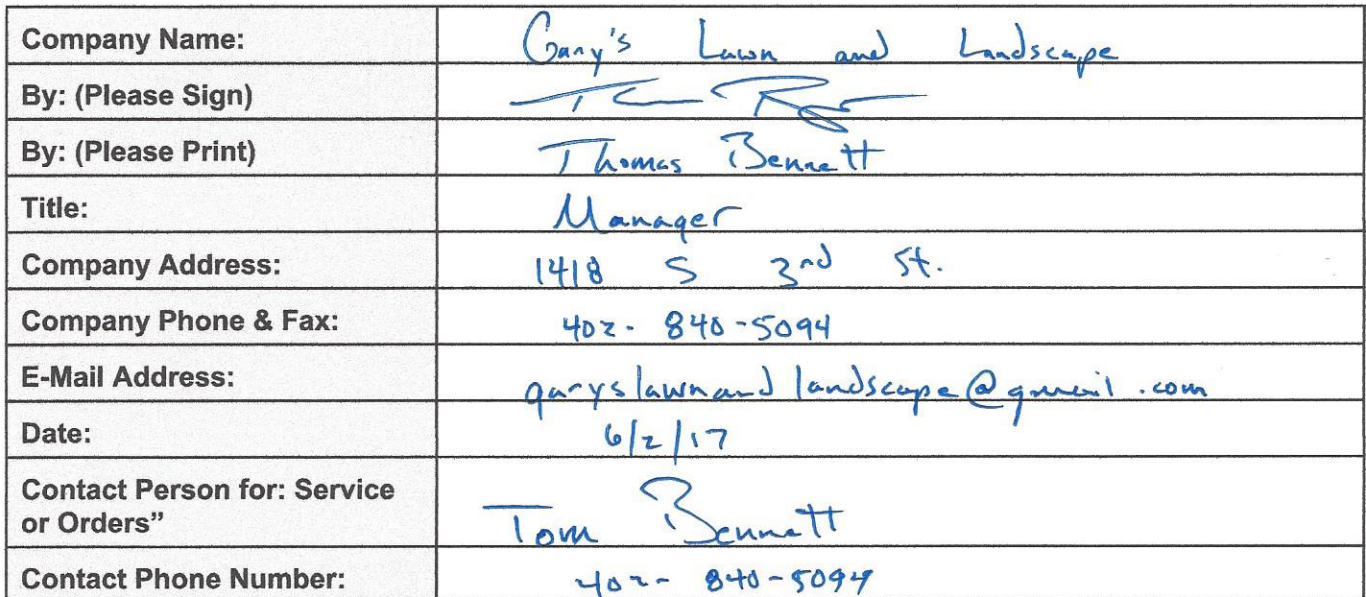 Company Name: Gary's Lawn and Landscape
By: (Please Sign)
By: (Please Print) Thomas Bennett
Title: Manager
Company Address: 1418 S 3rd St.
Company Phone & Fax: 402-840-5094
E-Mail Address: garyslawnandlandscape@gmail.com
Date: 6/2/17
Contact Person for: Service
or Orders” Tom Bennett
Contact Phone Number: 402-840-5094